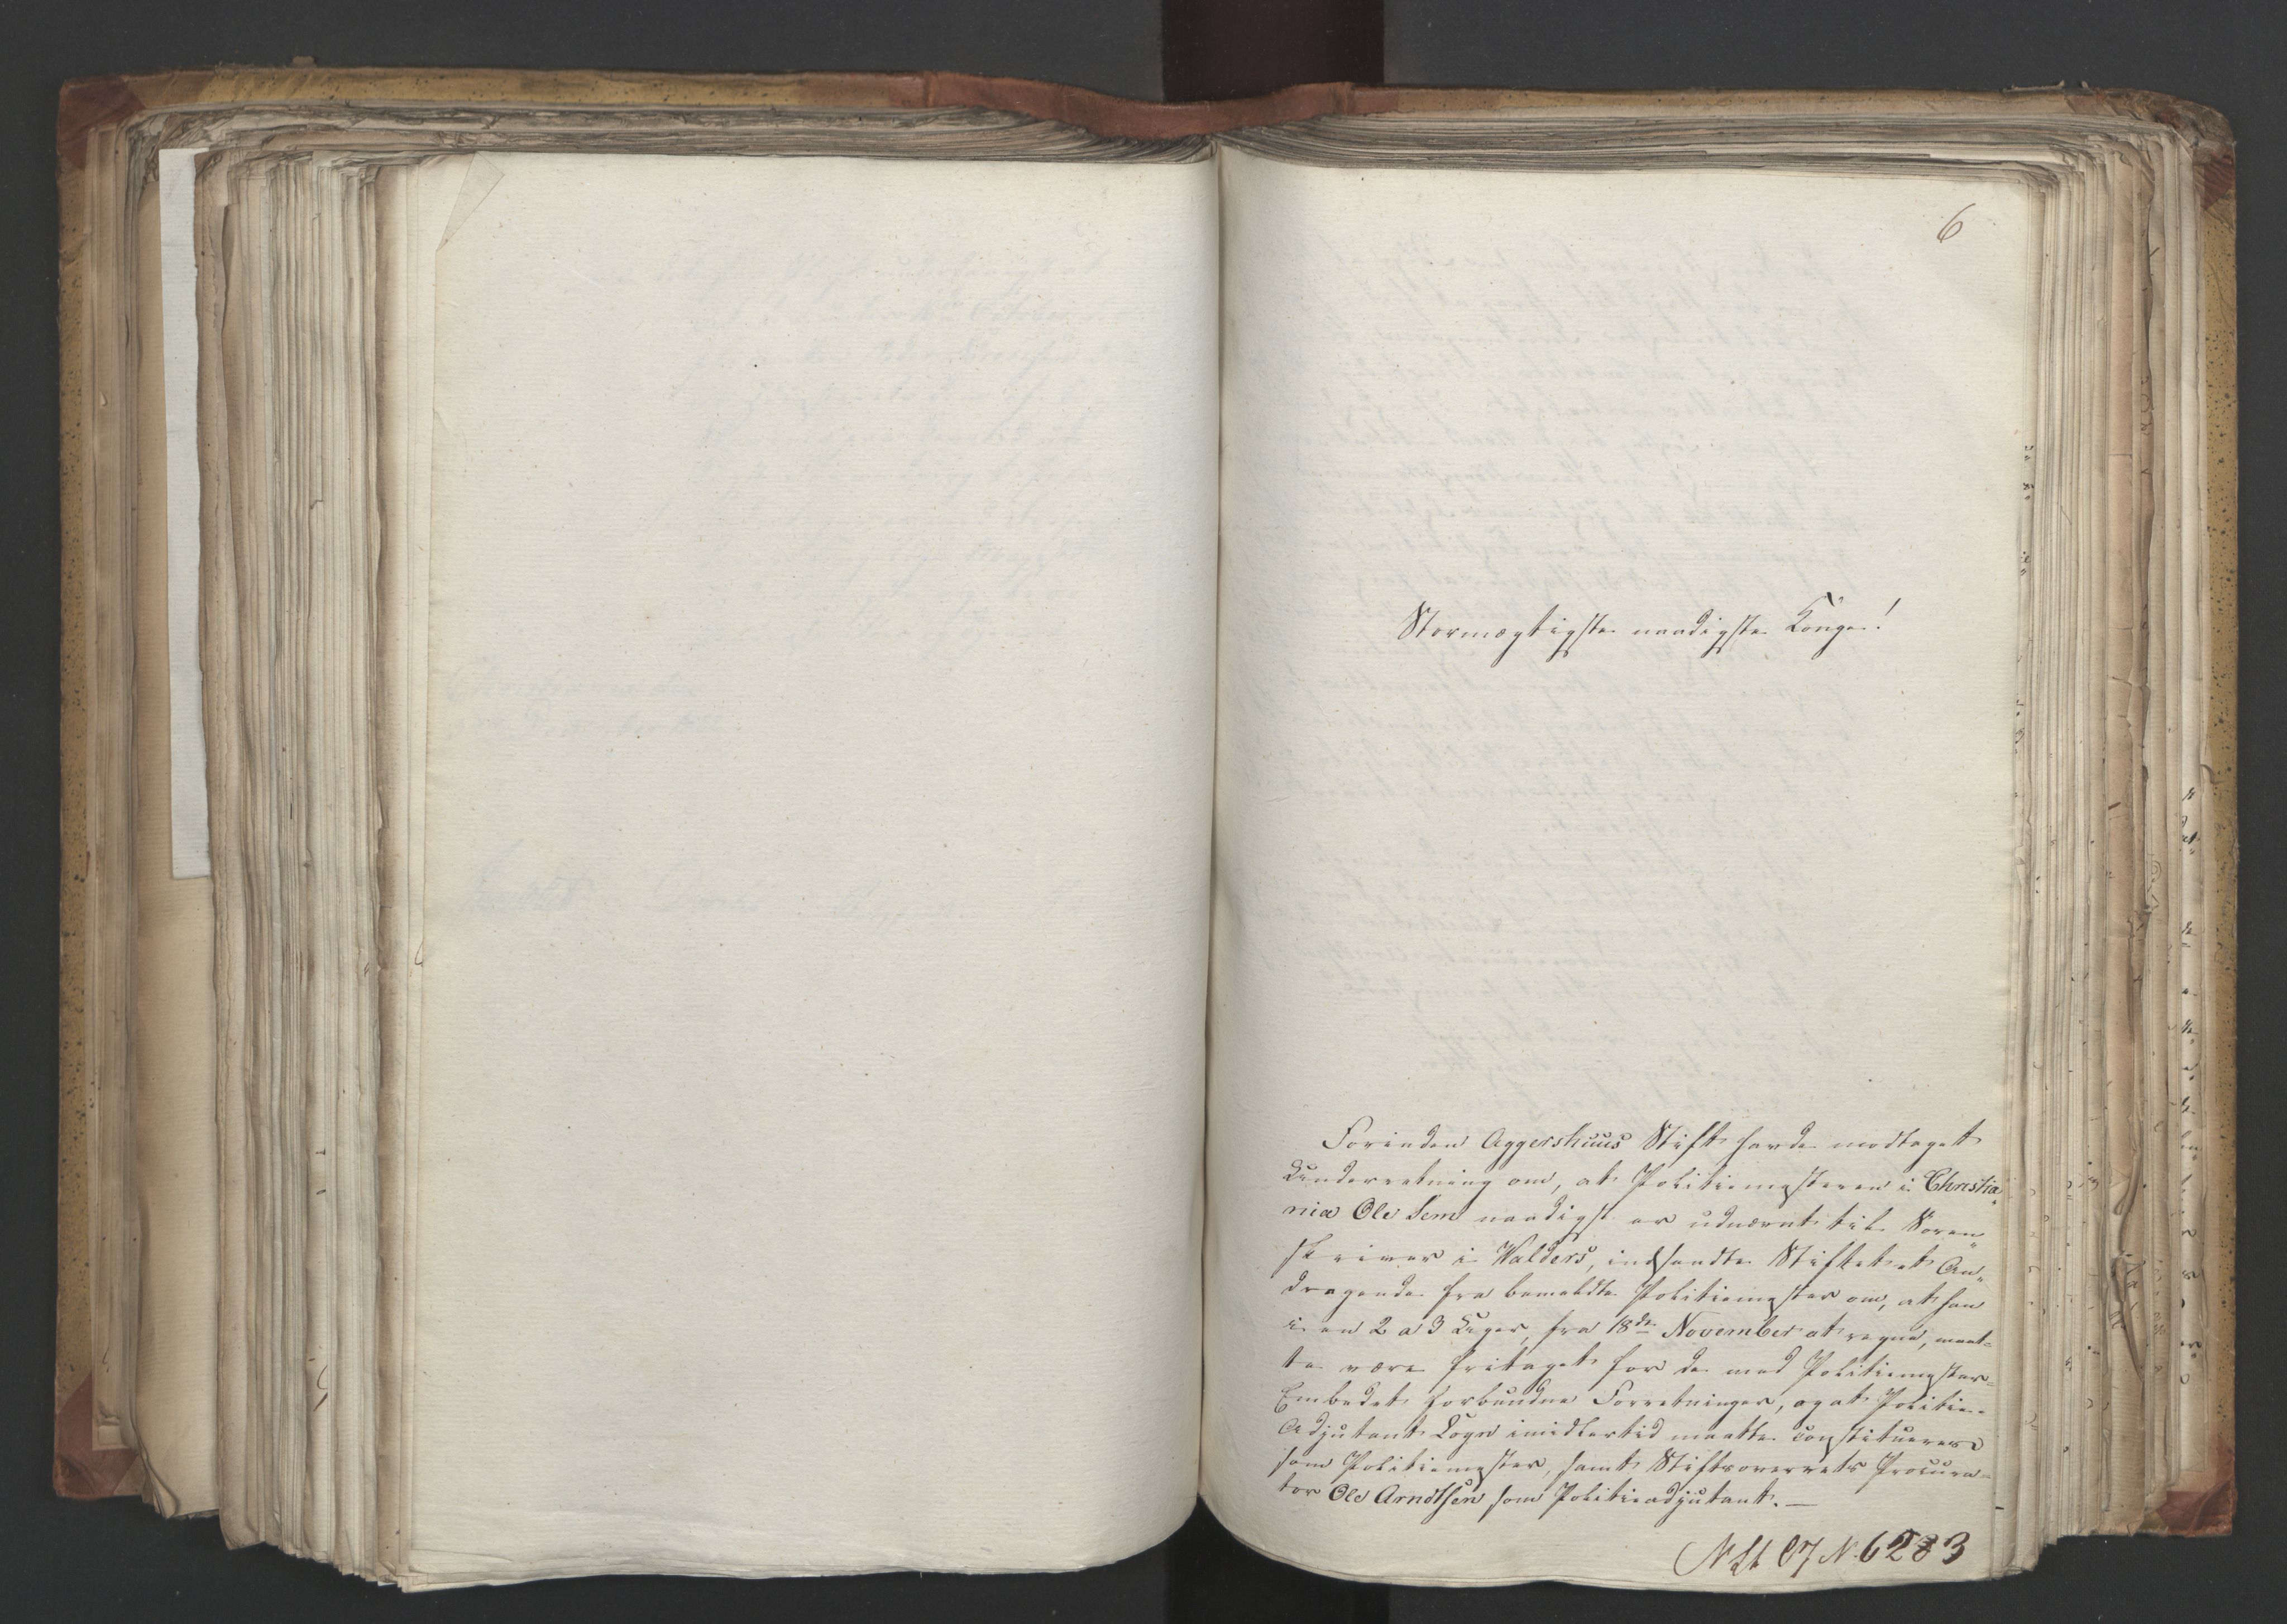 6
Stormægtigste naadigste Konge!
Forinden Aggershuus Stift havde modtaget
Underretning om, at Politiemesteren i Christia„
nia Ole Sem naadigst er udnævnt til Soren„
skriver i Walders, indsendte Stiftet et An„
dragende fra bemeldte Politiemester om, at han
i en 2 a 3 Uger, fra 18de November at regne, maat=
te være fritaget for de med Politiemester=
Embedet forbundne Forretninger, og at Politie=
Adjutant Vogn imidlertid maatte constitueres
som Politiemester, samt Stiftsoverrets Procura=
tor Ole Arndtsen som Politieadjutant. —
N. 6283